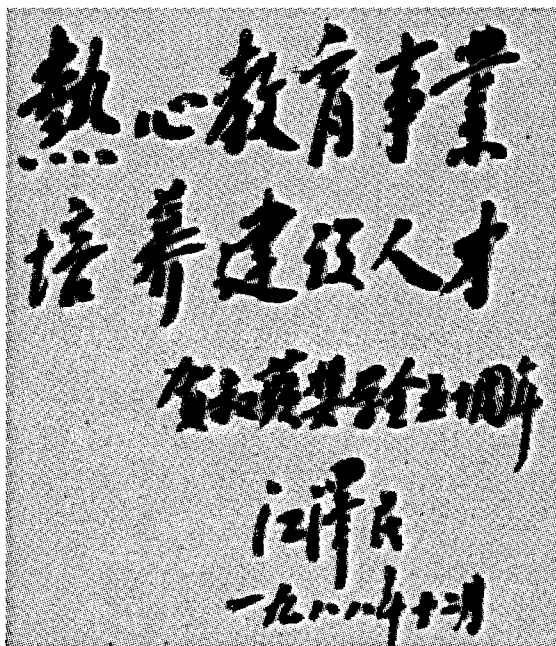 熱心教育事業
培养建设人才
贺奖学金五周年
江泽民
一九八八年十二月